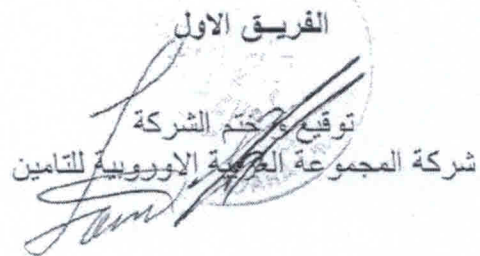 الفريــق الاول
توقيع و ختم الشركة
شركة المجموعة العربية الاوروبية للتامين